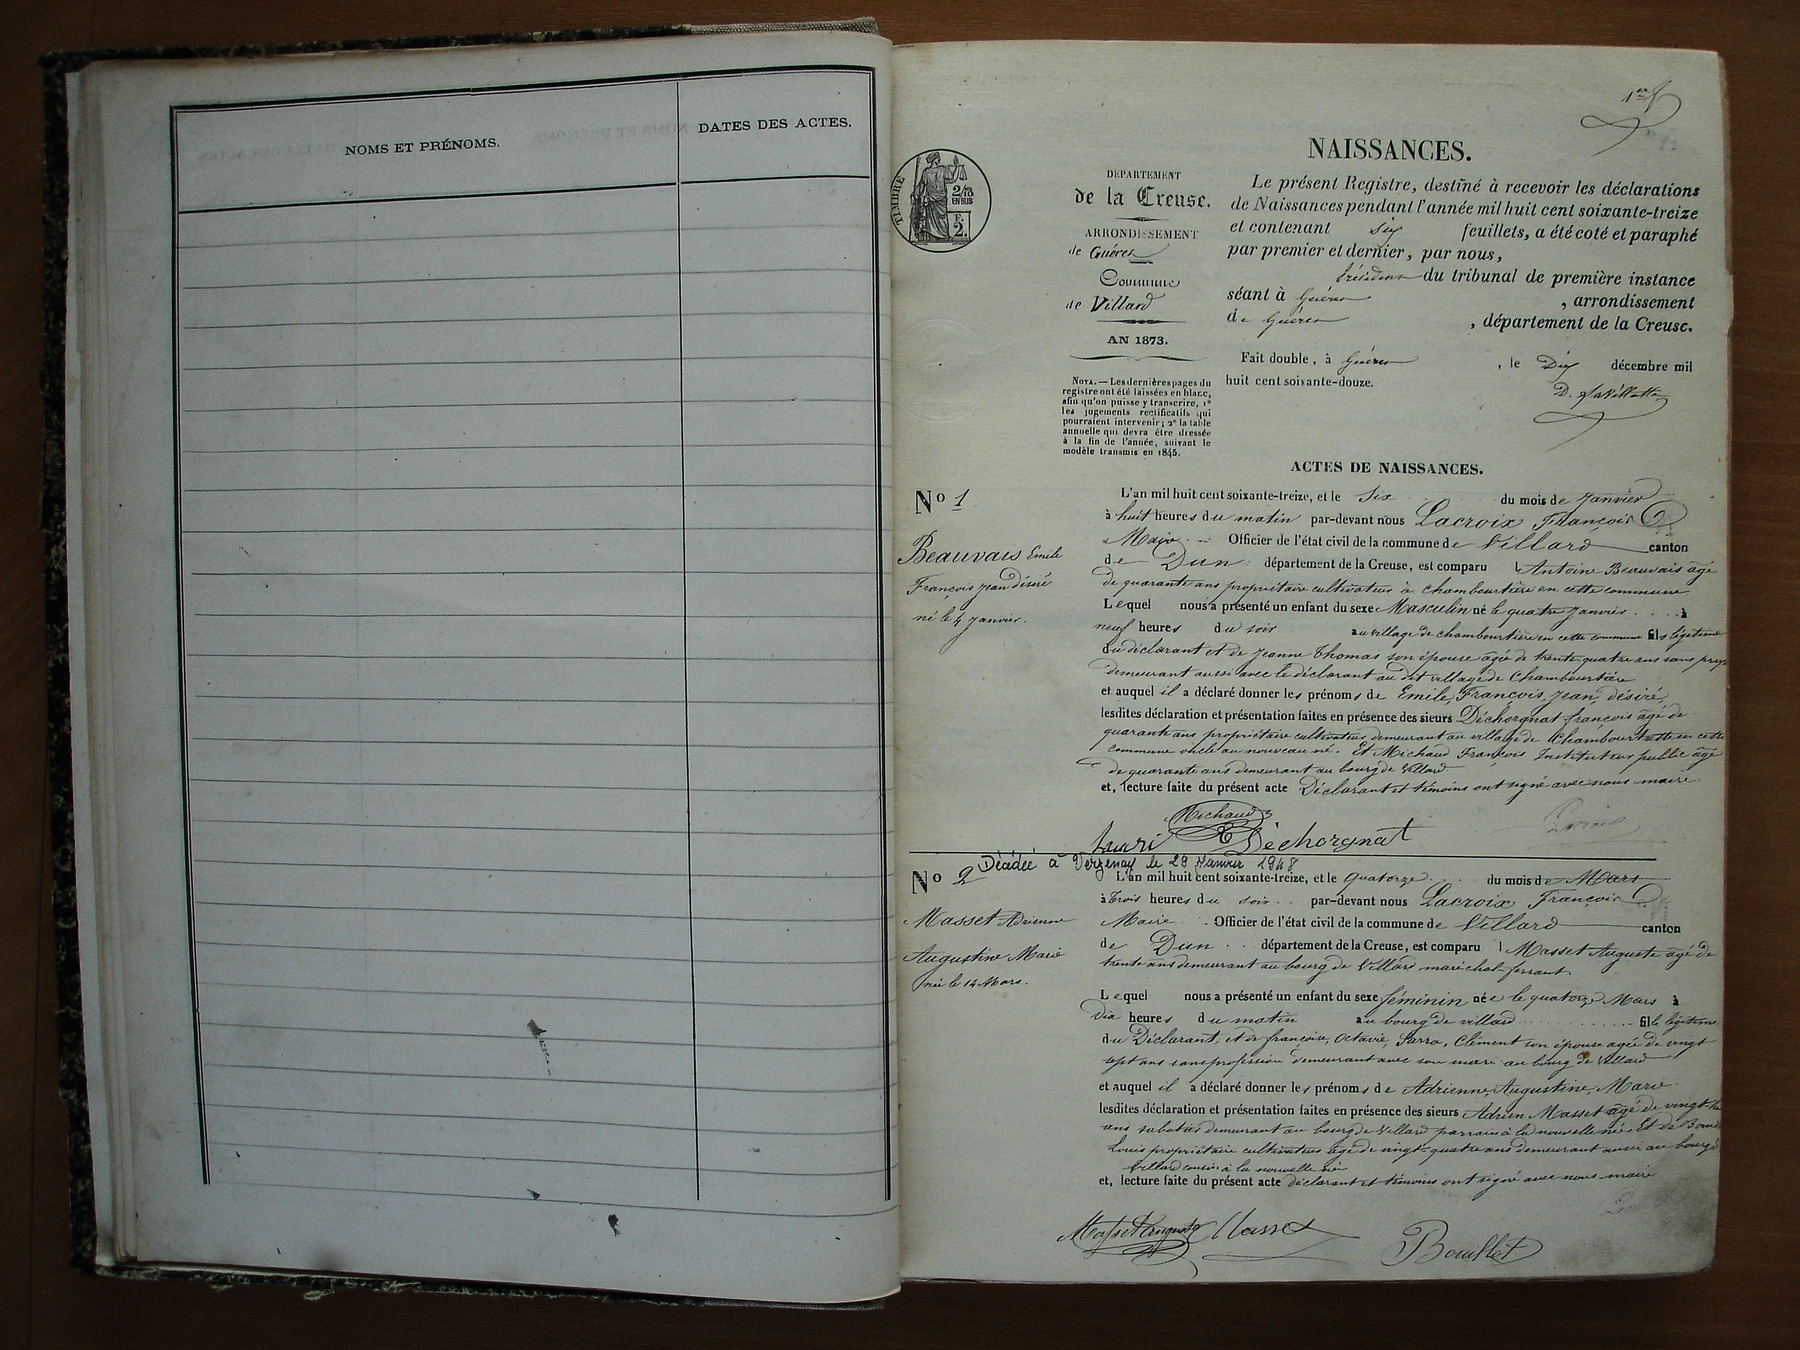 NOMS ET PRÉNOMS.
DATES DES ACTES.
1er
TIMBRE
2/10
EN SUS
F.
2.
DÉPARTEMENT
de la Creuse.
ARRONDISSEMENT
de Guéret
Commune
de Villard
AN 1873.
NOTA. — Les dernières pages du
registre ont été laissées en blanc,
afin qu'on puisse y transcrire, 1°
les jugements rectificatifs qui
pourraient intervenir; 2° la table
annuelle qui devra être dressée
à la fin de l'année, suivant le
modèle transmis en 1845.
NAISSANCES.
Le présent Registre, destiné à recevoir les déclarations
de Naissances pendant l'année mil huit cent soixante-treize
et contenant six feuillets, a été coté et paraphé
par premier et dernier, par nous,
Président du tribunal de première instance
séant à Guéret , arrondissement
de Guéret , département de la Creuse.
Fait double, à Guéret , le Dix décembre mil
huit cent soixante-douze.
ACTES DE NAISSANCES.
No 1
Beauvais Emile
François Jean désiré
né le 4 Janvier.
L'an mil huit cent soixante-treize, et le Six du mois de Janvier
à huit heures du matin par-devant nous Lacroix François
Maire Officier de l'état civil de la commune de Villard canton
de Dun département de la Creuse, est comparu Antoine Beauvais âgé
de quarante ans propriétaire cultivateur à Chambourtière en cette commune
Lequel nous a présenté un enfant du sexe Masculin né le quatre Janvier à
neuf heures du soir au village de chambourtière en cette commune fils légitime
du déclarant et de Jeanne Thomas son épouse âgée de trente quatre ans sans prof
demeurant aussi avec le déclarant au dit village de Chambourtière
et auquel il a déclaré donner les prénoms de Emile, François, Jean, désiré,
lesdites déclaration et présentation faites en présence des sieurs Déchorgnat françois âgé de
quarante ans propriétaire cultivateur demeurant au village de Chambourtière en cette
commune oncle au nouveau né. Et Michaud François Instituteur public âgé
de quarante ans demeurant au bourg de Villard
et, lecture faite du présent acte Déclarant et témoins ont signé avec nous maire
Michaud
Déchorgnat
Lacroix
Décédée à Verzenay le 29 Janvier 1948
No 2
Masset Adrienne
Augustine Marie
née le 14 Mars.
L'an mil huit cent soixante-treize, et le quatorze du mois de Mars
à trois heures du soir par-devant nous Lacroix François
Maire Officier de l'état civil de la commune de Villard canton
de Dun département de la Creuse, est comparu Masset Auguste âgé de
trente ans demeurant au bourg de Villard maréchal-ferrant
Lequel nous a présenté un enfant du sexe féminin née le quatorze Mars à
dix heures du matin au bourg de villard fille légitime
du Déclarant, et de françoise, Octavie, Clément son épouse agée de vingt
sept ans sans profession demeurant avec son mari au bourg de Villard
et auquel il a déclaré donner les prénoms de Adrienne, Augustine, Marie
lesdites déclaration et présentation faites en présence des sieurs Adrien Masset âgé de vingt
ans sabotier demeurant au bourg de Villard parrain à la nouvelle née. Et de
Louis propriétaire cultivateur âgé de vingt-quatre ans demeurant aussi au bourg de
Villard cousin à la nouvelle née
et, lecture faite du présent acte déclarant et témoins ont signé avec nous maire
Masset Auguste Masset
Bouillet